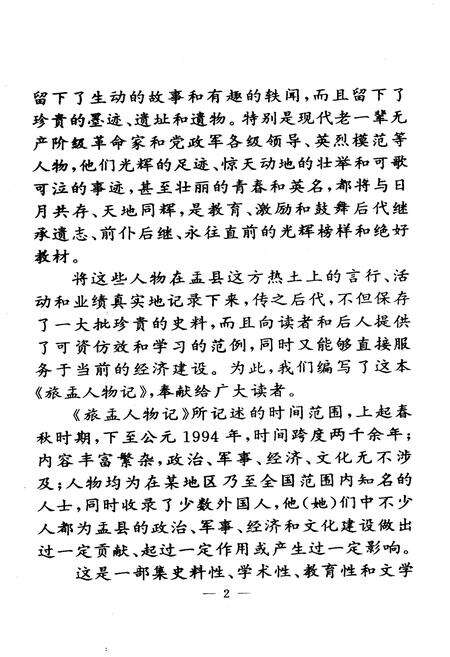 留下了生动的故事和有趣的轶闻，而且留下了
珍贵的墨迹、遗址和遗物。特别是现代老一辈无
产阶级革命家和党政军各级领导、英烈模范等
人物，他们光辉的足迹、惊天动地的壮举和可歌
可泣的事迹，甚至壮丽的青春和英名，都将与日
月共存、天地同辉，是教育、激励和鼓舞后代继
承遗志、前仆后继、永往直前的光辉榜样和绝好
教材。
将这些人物在盂县这方热土上的言行、活
动和业绩真实地记录下来，传之后代，不但保存
了一大批珍贵的史料，而且向读者和后人提供
了可资仿效和学习的范例，同时又能够直接服
务于当前的经济建设。为此，我们编写了这本
《旅盂人物记》，奉献给广大读者。
《旅盂人物记》所记述的时间范围，上起春
秋时期，下至公元1994年，时间跨度两千余年；
内容丰富繁杂，政治、军事、经济、文化无不涉
及；人物均为在某地区乃至全国范围内知名的
人士，同时收录了少数外国人，他(她)们中不少
人都为盂县的政治、军事、经济和文化建设做出
过一定贡献、起过一定作用或产生过一定影响。
这是一部集史料性、学术性、教育性和文学
— 2 —